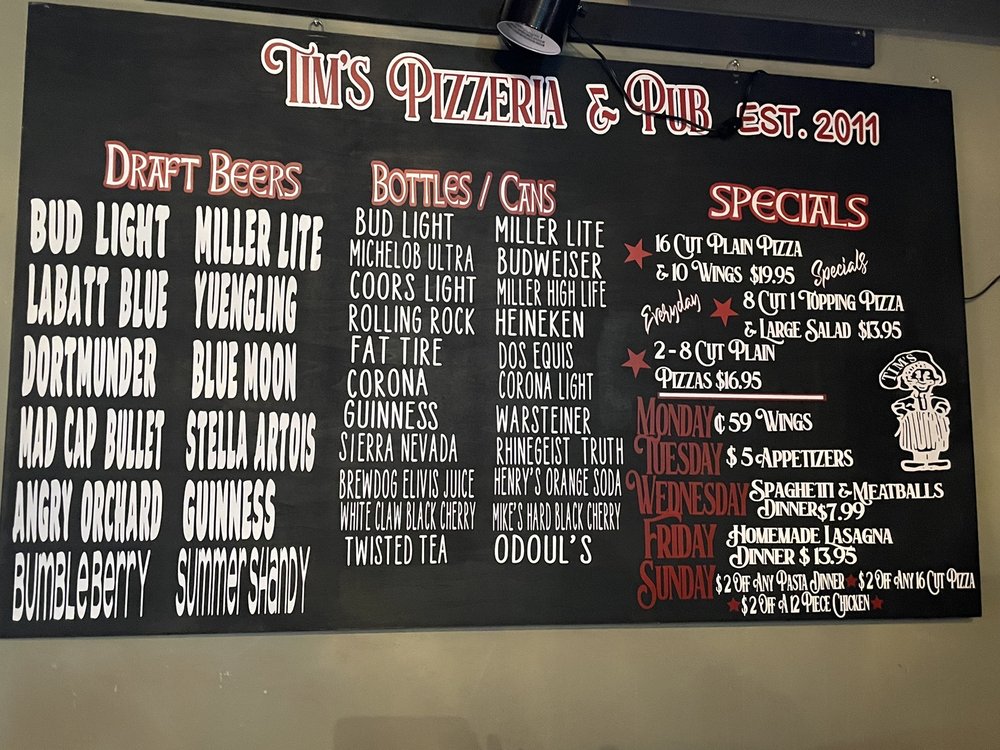 TIM'S PIZZERIA & PUB EST. 2011
DRAFT BEERS
BUD LIGHT MILLER LITE
LABATT BLUE YUENGLING
DORTMUNDER BLUE MOON
MAD CAP BULLET STELLA ARTOIS
ANGRY ORCHARD GUINNESS
BUMBLEBERRY SUMMER SHANDY
BOTTLES / CANS
BUD LIGHT MILLER LITE
MICHELOB ULTRA BUDWEISER
COORS LIGHT MILLER HIGH LIFE
ROLLING ROCK HEINEKEN
FAT TIRE DOS EQUIS
CORONA CORONA LIGHT
GUINNESS WARSTEINER
SIERRA NEVADA RHINEGEIST TRUTH
BREWDOG ELIVIS JUICE HENRY'S ORANGE SODA
WHITE CLAW BLACK CHERRY MIKE'S HARD BLACK CHERRY
TWISTED TEA ODOUL'S
SPECIALS
16 CUT PLAIN PIZZA
& 10 WINGS $19.95 Specials
Everyday 8 CUT 1 TOPPING PIZZA
& LARGE SALAD $13.95
2 - 8 CUT PLAIN
PIZZAS $16.95
TIM'S
MONDAY ¢ 59 WINGS
TUESDAY $ 5 APPETIZERS
WEDNESDAY SPAGHETTI & MEATBALLS
DINNER $7.99
FRIDAY HOMEMADE LASAGNA
DINNER $ 13.95
SUNDAY $ 2 OFF ANY PASTA DINNER $ 2 OFF ANY 16 CUT PIZZA
$ 2 OFF A 12 PIECE CHICKEN